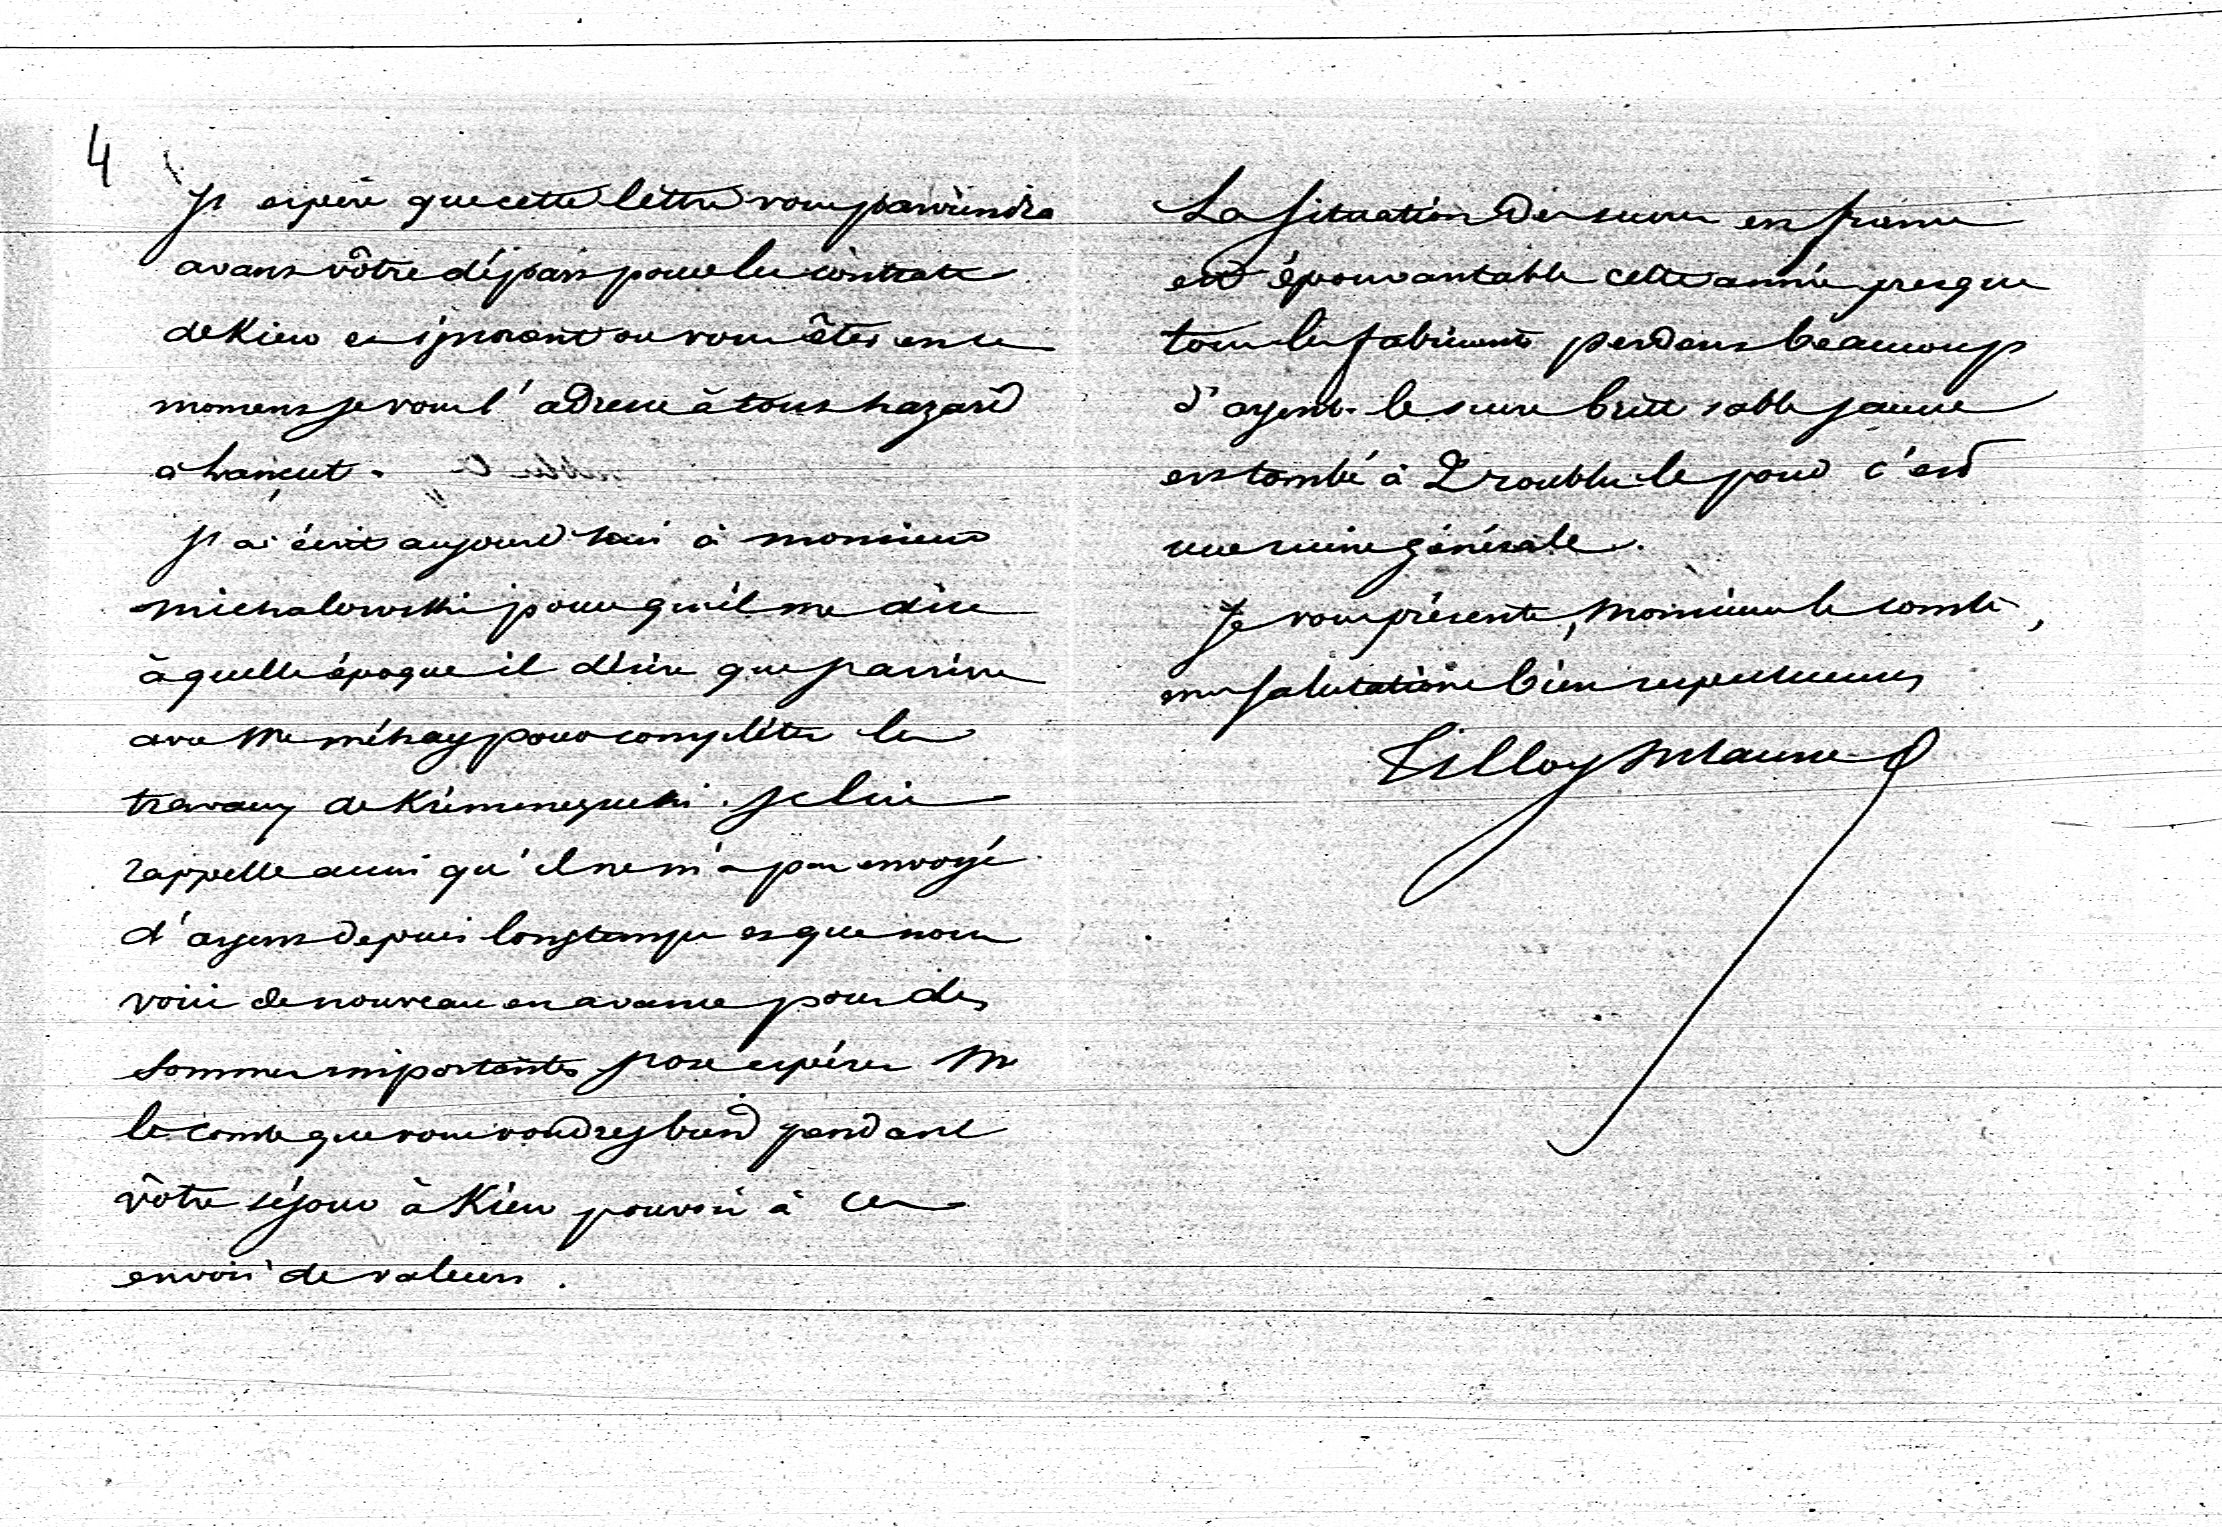 4
Je espère que cette lettre vous parviendra
avans vôtre dépars pour les contrats
de Kiew en ignorant ou vous êtes en ce
momens je vous l'adresse à tous hazard
à Lançut.
Je ai écrit aujourd'hui à monsieur
michalowski pour qu'il me dise
à quelle époque il désire que j'arrive
avec Mr méhay pour compléter les
travaux de. Je lui
rappelle aussi qu'il ne m'a pas envoyé
d'argens depuis longtemps es que nous
voici de nouveau en avance pour des
sommes importantes j'ose espérer Mr
le comte que vous voudrez bien pendant
vôtre séjour à Kiew pouvoir à ces
envois de valeurs.
La situation des sucres en france
est épouvantable cette année presque
tous les fabricants perdens beaucoup
d'argens. le sucre brut sable jaune
ens tombé à 2 roubles le poud c'est
une ruine générale.
Je vous présente, Monsieur le comte,
mes salutations bien respectueuses
Tilloy Delaune